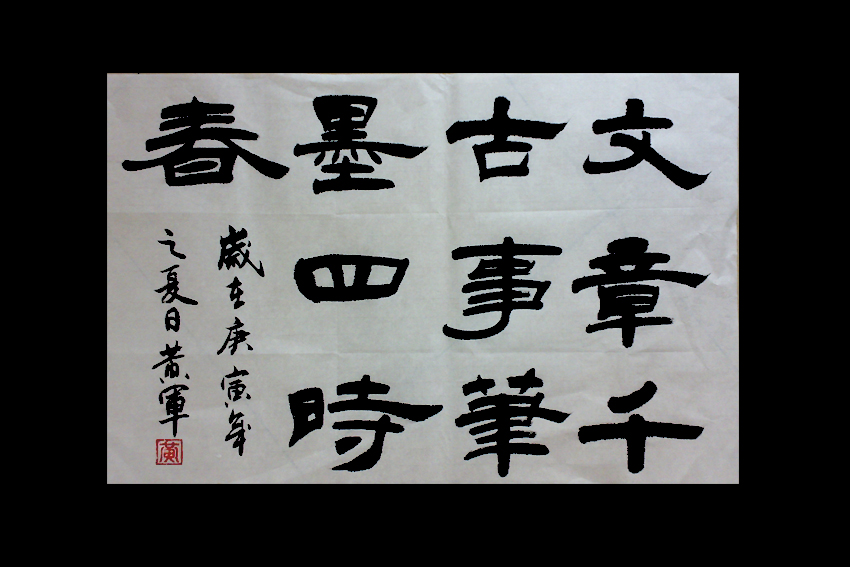 文章千
古事筆
墨四時
春
歲在庚寅年
之夏日黄軍
黃